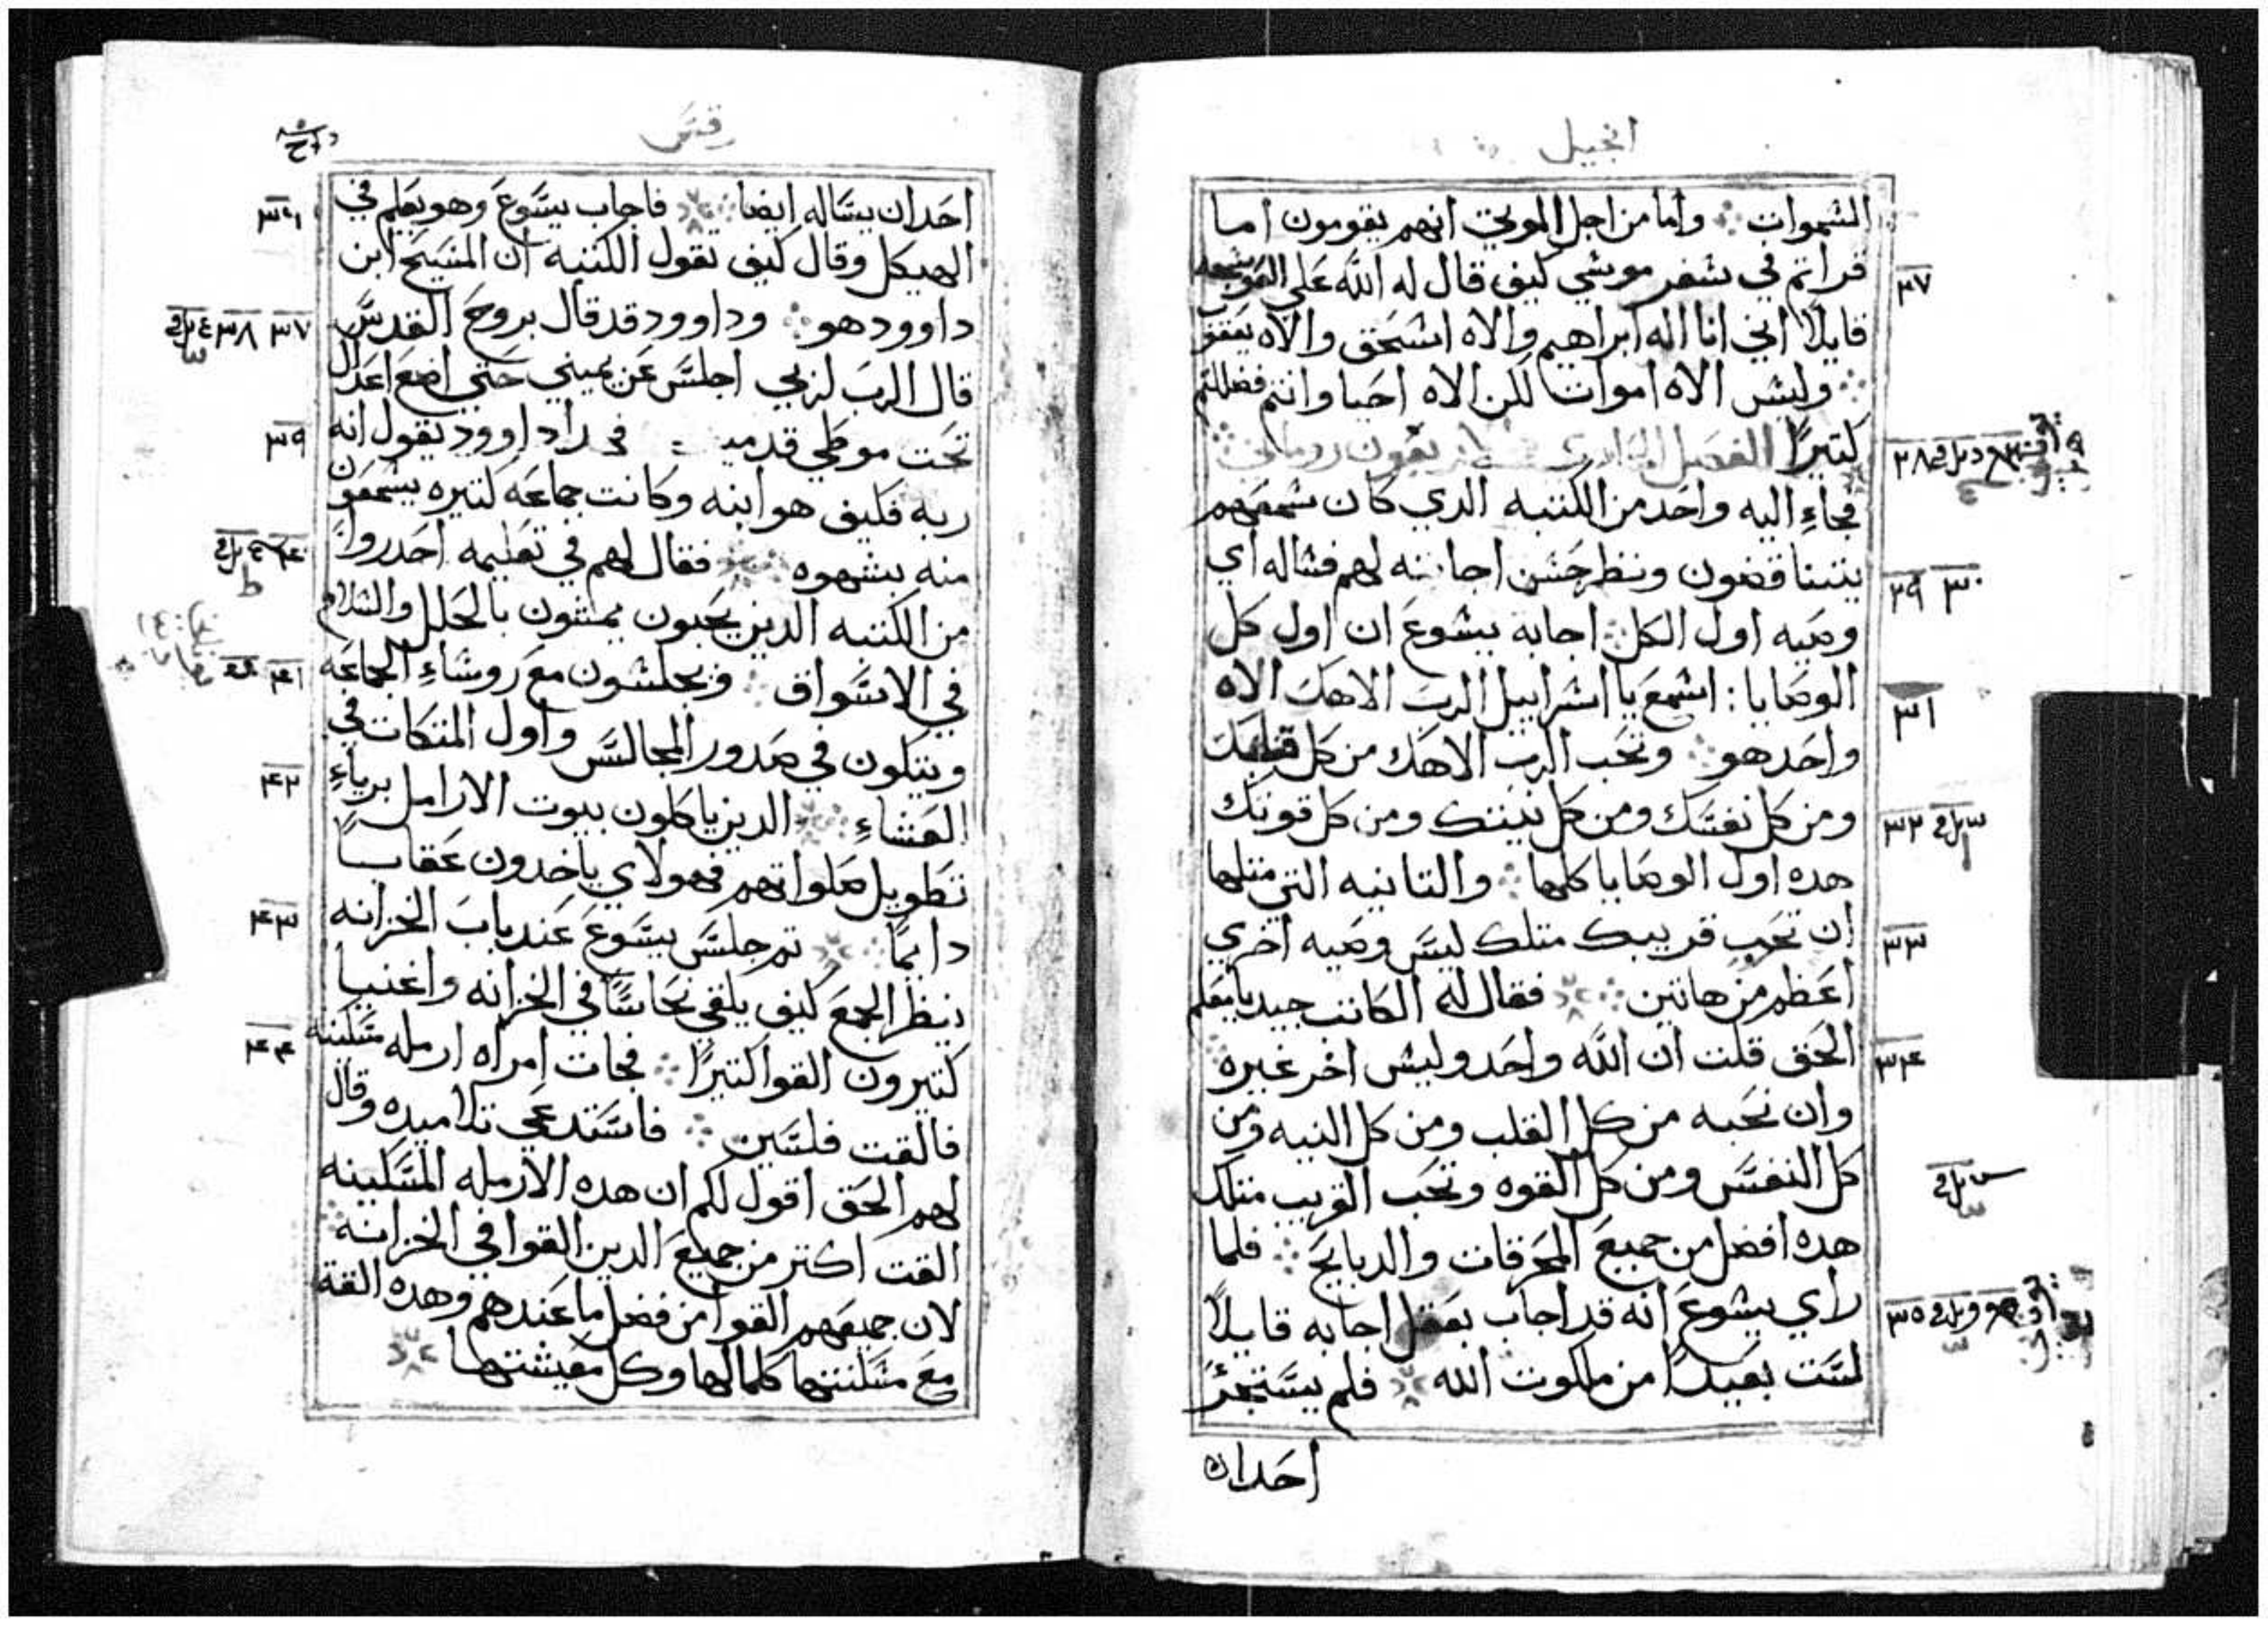 انجيل
السموات وأما من اجل الموتي انهم يقومون اما
قراتم في سفر موسي كيف قال له الله علي العوسجه
قايلاً اني انا اله ابراهيم والاه اسحق والاه يعقوب
وليس الاه اموات لكن الاه احيا وانتم فضللتم
كتيراً الفصل
فجاء اليه واحد من الكتبه الدي كان سمعهم
يتناقضون ونظر حسن اجابته لهم فساله اي
وصيه اول الكل اجابه يسوع ان اول كل
الوصايا : اسمع يا اسراييل الرب الاهك الاه
واحد هو وتحب الرب الاهك من كل قلبك
ومن كل نفسك ومن كل نيتك ومن كل قوتك
هده اول الوصايا كلها والتانيه التي متلها
ان تحب قريبك متلك ليس وصيه اخري
اعظم من هاتين فقال له الكاتب جيد يا معلم
الحق قلت ان الله واحد وليس اخر غيره
وان نحبه من كل القلب ومن كل النيه ومن
كل النفس ومن كل القوه وتحب القريب متلك
هده افضل من جميع المحرقات والدبايح فلما
راي يسوع انه قد اجاب بعقل اجابه قايلاً
لست بعيداً من ملكوت الله فلم يستجرئ
احدان
٢٧
٢٨
٢٩ ٣٠
٣١
٣٢
٣٣
٣٤
٣٥
مرقس
احدان يساله ايضا فاجاب يسوع وهو يعلم في
الهيكل وقال كيف تقول الكتبه ان المسيح ابن
داوود هو وداوود قد قال بروح القدس
قال الرب لربي اجلس عن يميني حتي اضع اعداك
تحت موطي قدميك فهودا داوود يقول انه
ربه فكيف هو ابنه وكانت جماعه كتيره يسمعون
منه بشهوه فقال لهم في تعليمه احدروا
من الكتبه الدين يحبون يمشون بالحلل والسلام
في الاسواق ويجلسون مع روساء الجماعه
ويتكون في صدور المجالس واول المتكات في
العشاء الدين ياكلون بيوت الارامل برياء
تطويل صلواتهم فهولاي ياخدون عقاباً
دايماً تم جلس يسوع عند باب الخزانه
ينظر الجمع كيف يلقي نحاساً في الخزانه واغنيا
كتيرون القوا كتيراً فجات امراه ارمله مسكينه
فالقت فلسين فاستدعي تلاميده وقال
لهم الحق اقول لكم ان هده الارمله المسكينه
القت اكتر من جميع الدين القوا في الخزانه
لان جميعهم القوا من فضل ما عندهم وهده القة
مع مسكنتها كلما لها وكل معيشتها
٣٦
٣٧ ٣٨
٣٩
٤٠
٤١
٤٢
٤٣
٤٤